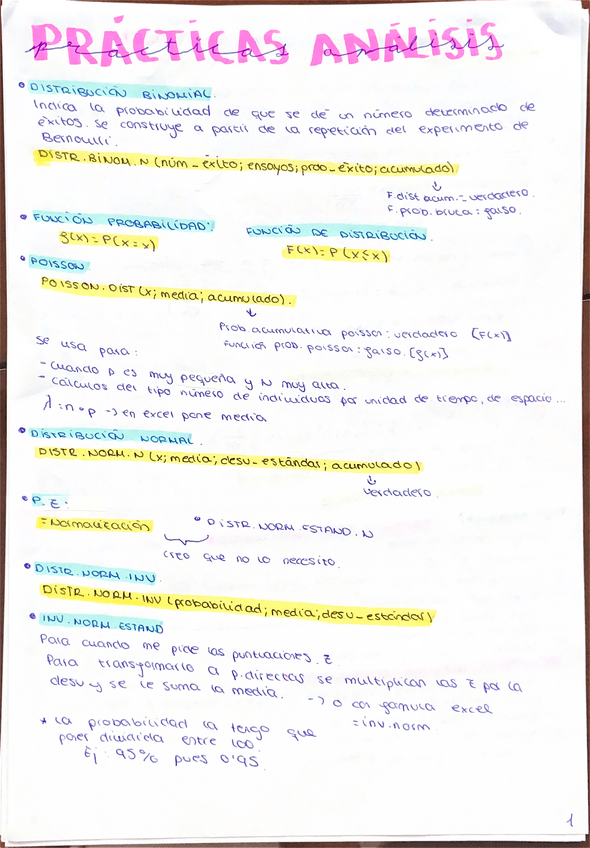 PRÁCTICAS ANÁLISIS
prácticas análisis
• DISTRIBUCIÓN BINOMIAL.
Indica la probabilidad de que se de un número determinado de
éxitos. Se construye a partir de la repetición del experimento de
Bernoulli.
DISTR.BINOM.N (núm_éxito; ensayos; prob_éxito; acumulado)
↓
F.dist acum. = verdadero.
F.prob.bruta : falso.
• FUNCIÓN PROBABILIDAD: FUNCIÓN DE DISTRIBUCIÓN.
f(x) = P(X = x) F(x) = P(X ≤ x)
• POISSON
POISSON.DIST (x; media; acumulado).
↓
Prob. acumulativa poisson : verdadero [F(x)]
Función prob. poisson : falso. [f(x)]
Se usa para :
- cuando p es muy pequeña y N muy alta.
- cálculos del tipo número de individuos por unidad de tiempo, de espacio...
λ = n • p → en excel pone media
• DISTRIBUCIÓN NORMAL.
DISTR.NORM.N (x; media; desv_estándar; acumulado)
↓
verdadero.
• P.Z :
= Normalización • DISTR.NORM.ESTAND.N
creo que no lo necesito.
• DISTR.NORM.INV.
DISTR.NORM.INV (probabilidad; media; desv_estándar)
• INV.NORM.ESTAND
Para cuando me pide las puntuaciones Z
Para transformarlo a p.directas se multiplican las Z por la
desv y se le suma la media. → o con fórmula excel
= inv.norm
* La probabilidad la tengo que
poner dividida entre 100.
Ej : 95% pues 0'95.
1